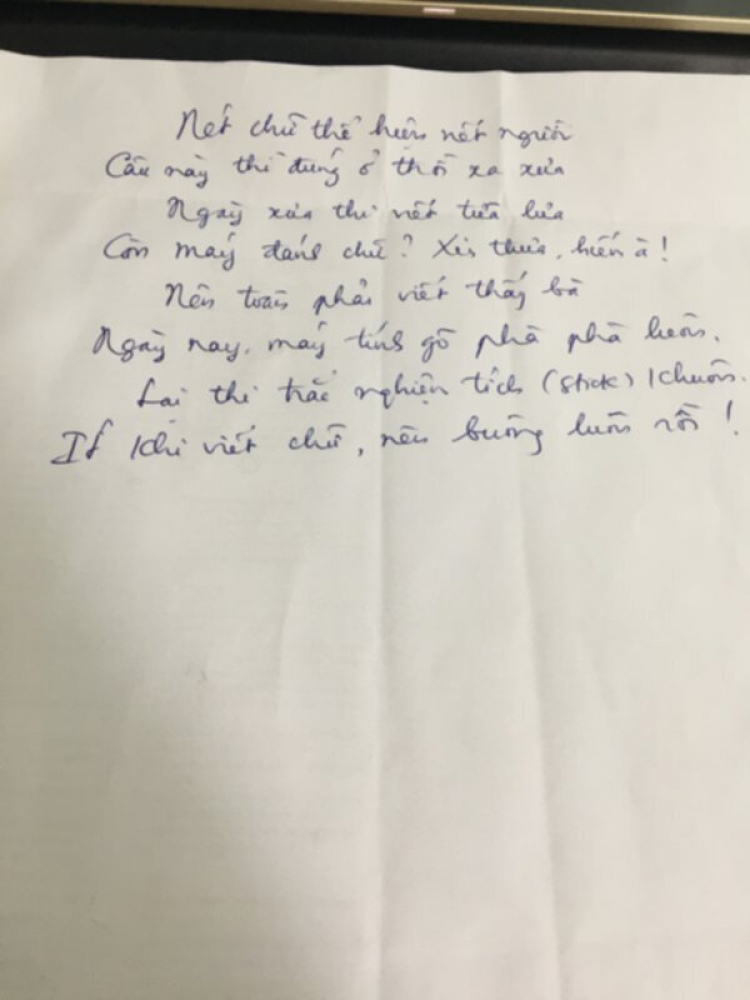 Nét chữ thể hiện nết người
Câu này thì đúng ở thời xa xưa
Ngày xưa thi viết tứa lưa
Còn máy đánh chữ? Xin thưa, hiếm à!
Nên toàn phải viết thấy bà
Ngày nay, máy tính gõ phà phà luôn.
Lại thi trắc nghiệm tích (stick) khuôn.
Ít khi viết chữ, nên buông luôn rồi!